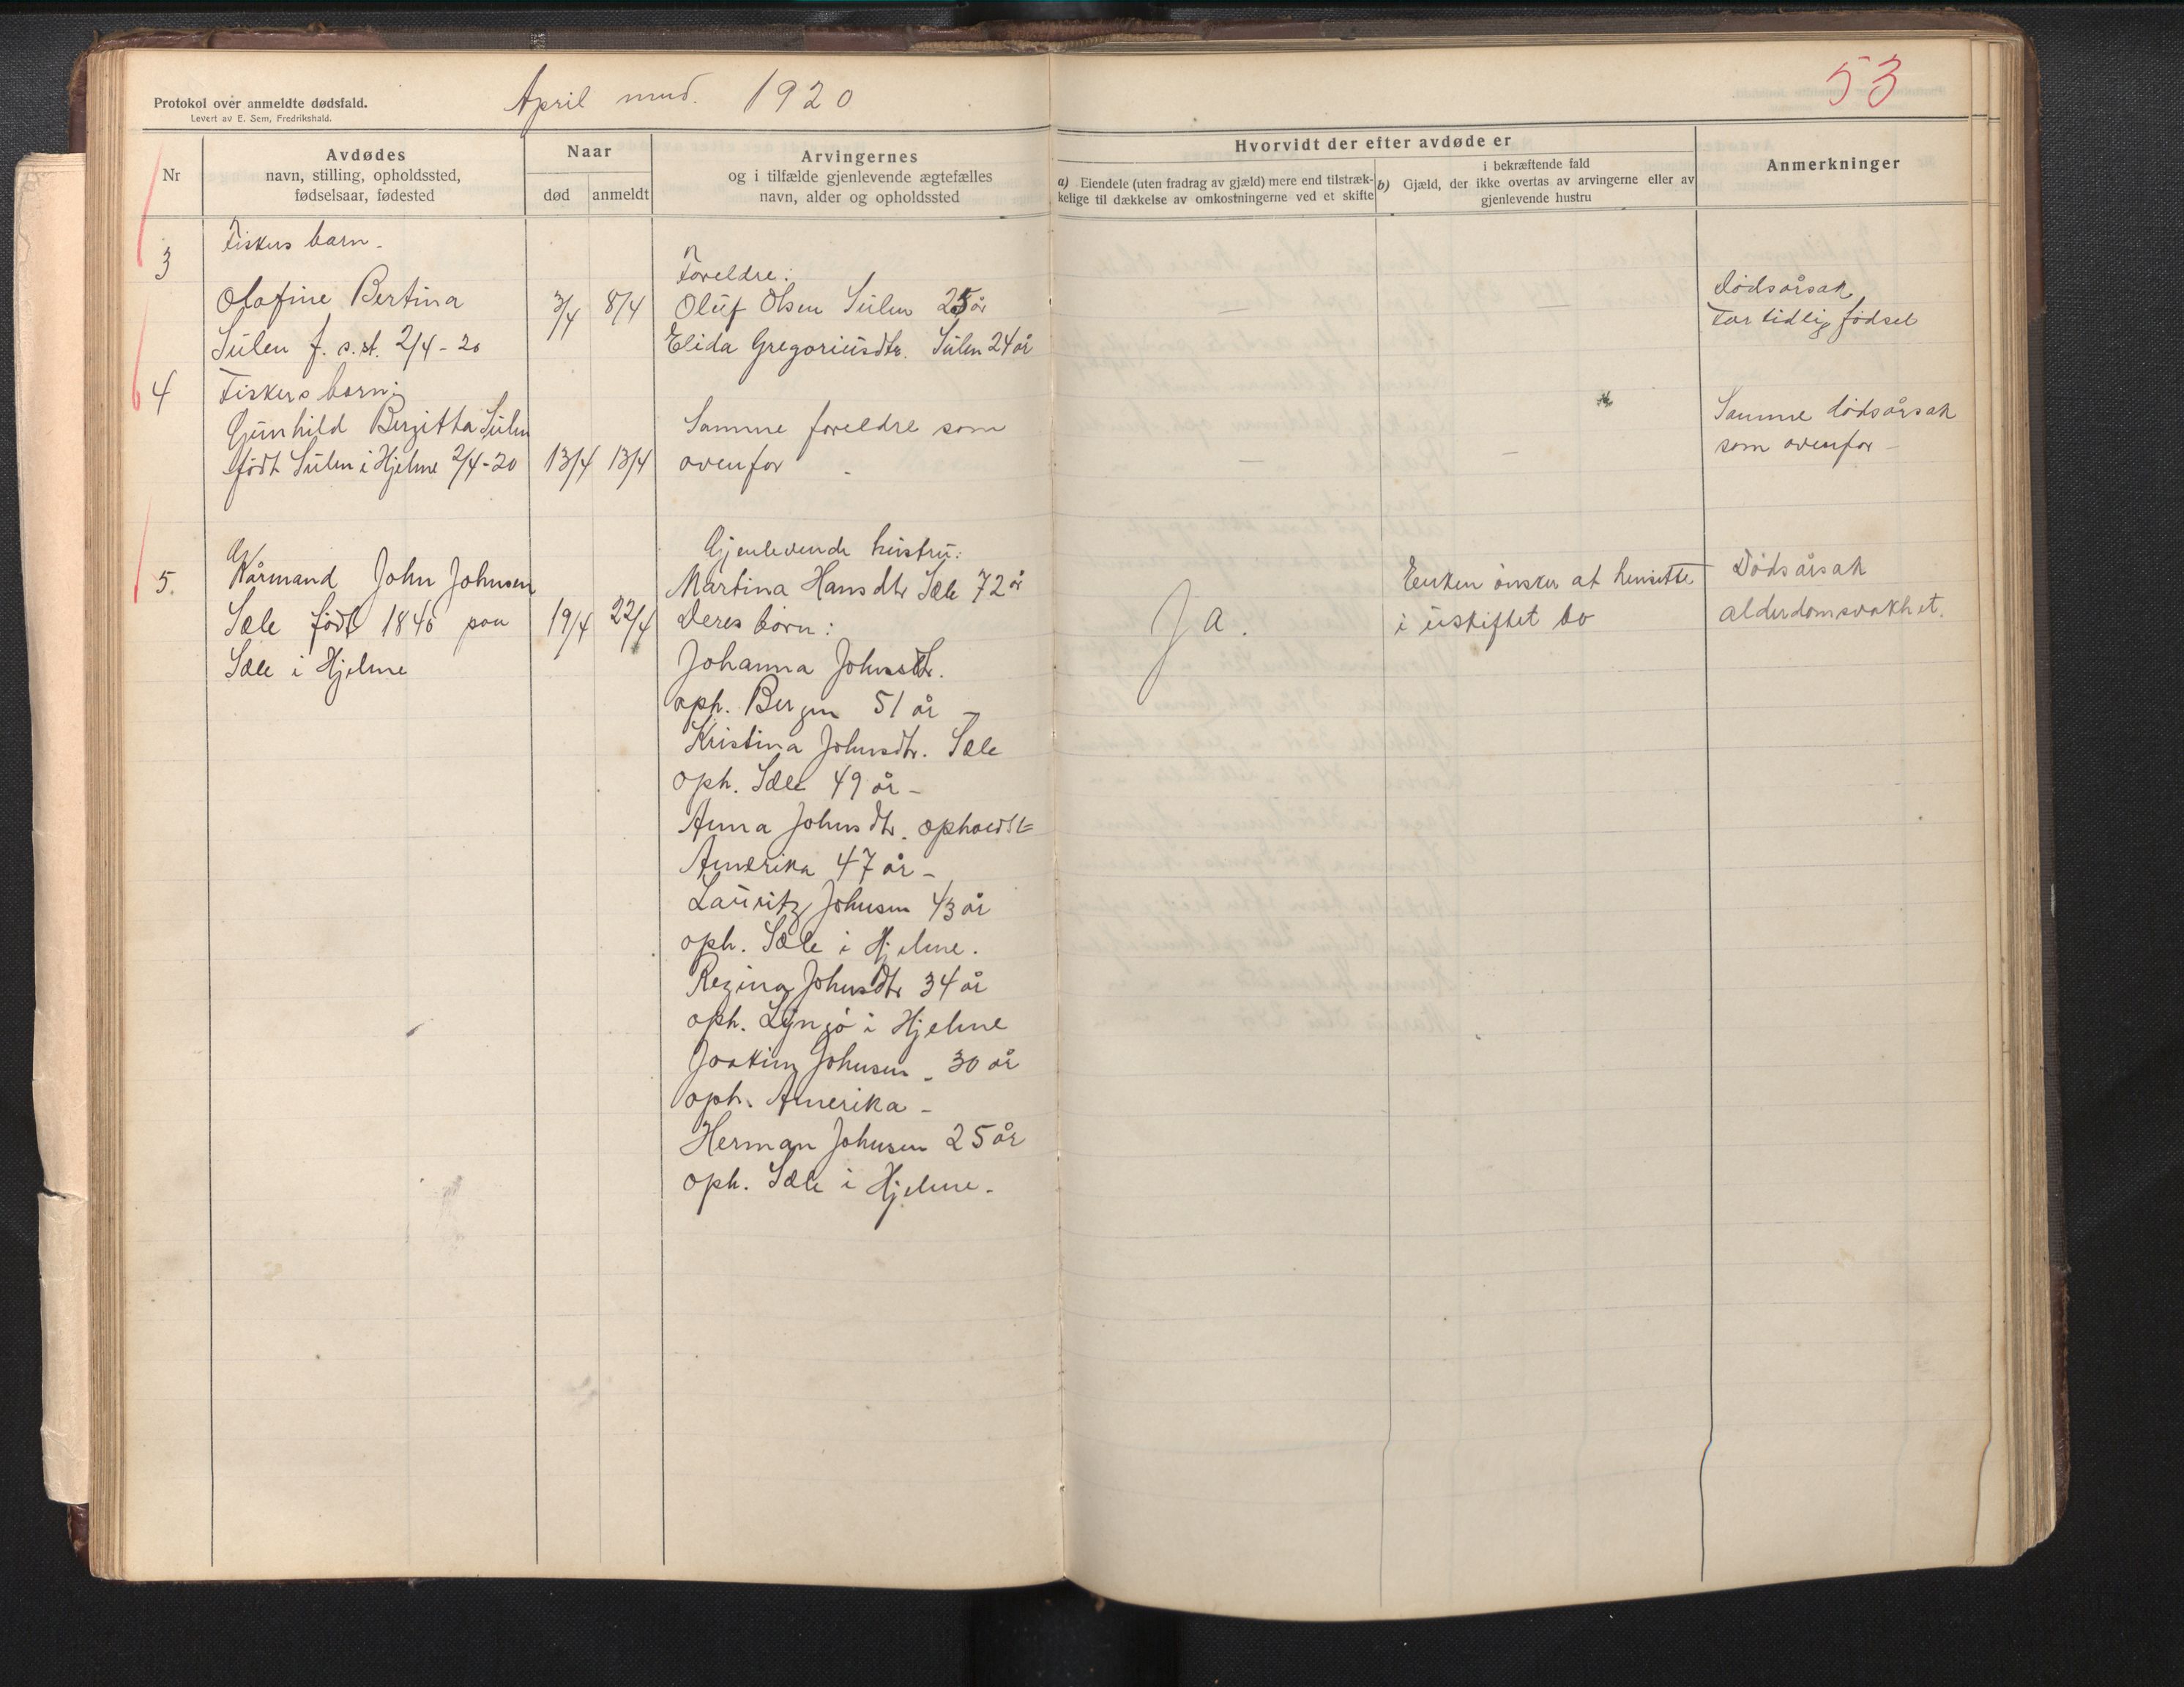 53
Protokol over anmeldte dødsfald.
Levert av E. Sem, Fredrikshald.
April mnd. 1920
Nr
Avdødes
navn, stilling, opholdssted,
fødselsaar, fødested
Naar
død
anmeldt
Arvingernes
og i tilfælde gjenlevende ægtefælles
navn, alder og opholdssted
Hvorvidt der efter avdøde er
a) Eiendele (uten fradrag av gjæld) mere end tilstræk-
kelige til dækkelse av omkostningerne ved et skifte
i bekræftende fald
b) Gjæld, der ikke overtas av arvingerne eller av
gjenlevende hustru
Anmerkninger
3
Fiskers barn.
Olafine Bertina
Sulen f. s. st. 2/4-20
3/4
8/4
Foreldre:
Oluf Olsen Sulen 25 år
Elida Gregoriusdtr. Sulen 24 år
—
—
Dødsårsak
For tidlig fødsel
4
Fiskers barn:
Gunhild Bergitta Sulen
født Sulen i Hjelme 2/4-20
13/4
13/4
Samme foreldre som
ovenfor
—
—
Samme dødsårsak
som ovenfor -
5.
Kårmand John Johnsen
Sæle født 1846 paa
Sæle i Hjelme
19/4
22/4
Gjenlevende hustru:
Martina Hansdtr Sæle 72 år
Deres børn:
Johanna Johnsdtr.
oph. Bergen 51 år -
Kristina Johnsdtr. Sæle
oph. Sæle 49 år -
Anna Johnsdtr. opholdst=
Amerika 47 år -
Lauritz Johnsen 43 år
oph. Sæle i Hjelme.
Regina Johnsdtr 34 år
oph. Lyngø i Hjelme
Joakim Johnsen - 30 år
oph. Amerika -
Herman Johnsen 25 år
oph. Sæle i Hjelme.
Ja.
Enken ønsker at hensitte
i uskiftet bo
Dødsårsak
alderdomsvakhet.